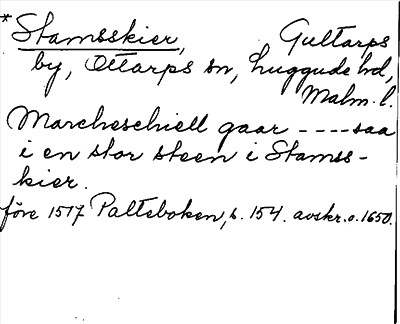 *Stamsskier, Gultarps
by, Ottarps sn, Luggude hd,
Malm. l.
Marcheschiell gaar ----saa
i en stor steen i Stamss-
kier.
före 1517 Palteboken, s. 154. avskr. o. 1650.